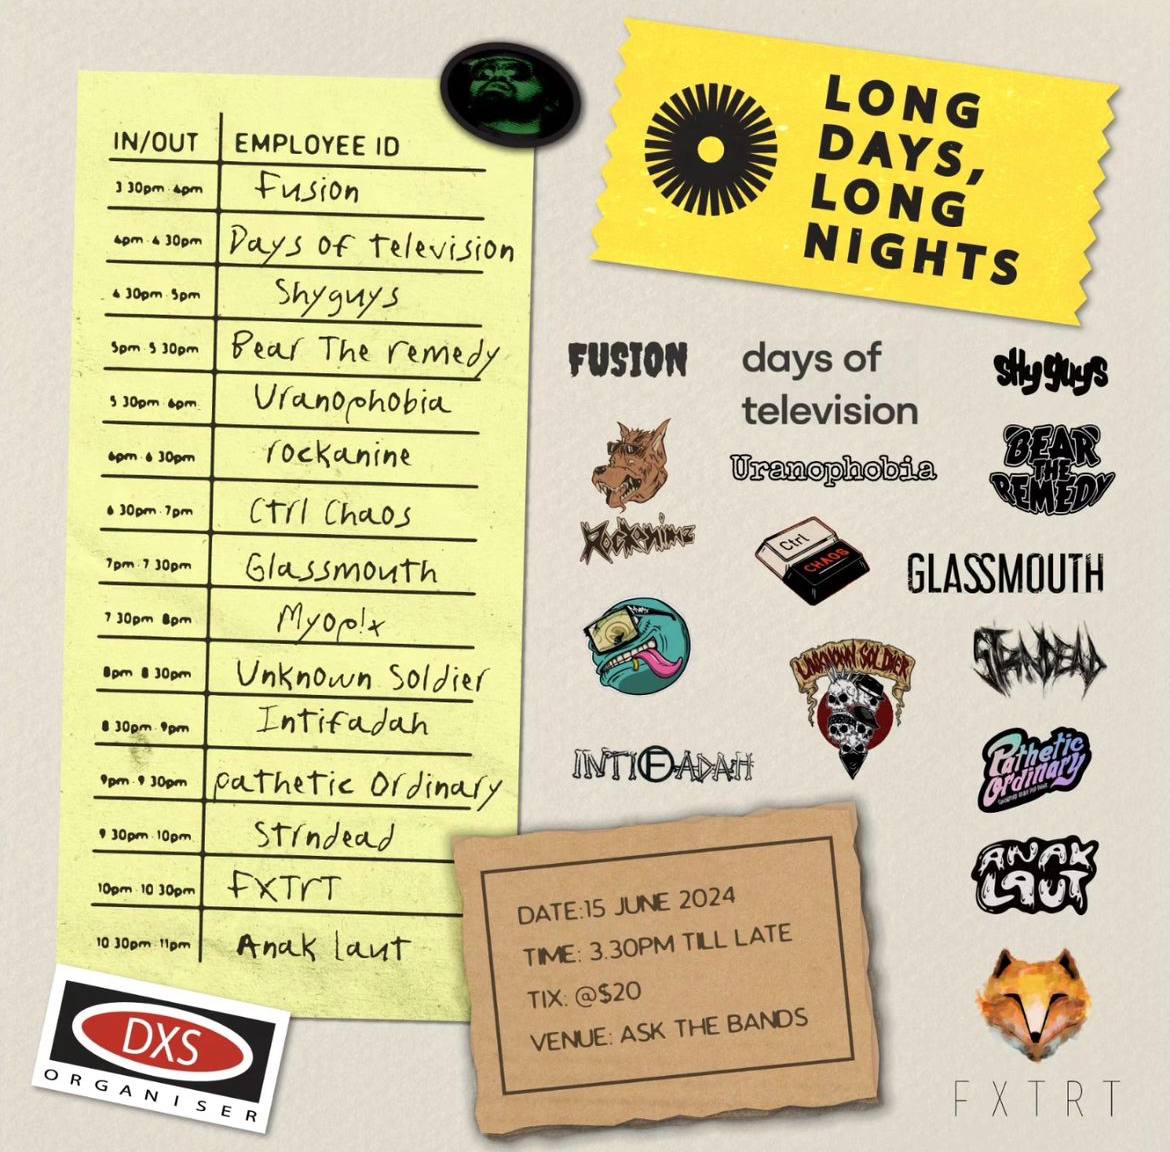 LONG
DAYS,
LONG
NIGHTS
IN/OUT EMPLOYEE ID
3 30pm 4pm Fusion
4pm 4 30pm Days of television
4 30pm 5pm Shyguys
5pm 5 30pm Bear The remedy
5 30pm 6pm Uranophobia
6pm 6 30pm rockanine
6 30pm 7pm Ctrl Chaos
7pm 7 30pm Glassmouth
7 30pm 8pm Myop!x
8pm 8 30pm Unknown Soldier
8 30pm 9pm Intifadah
9pm 9 30pm pathetic Ordinary
9 30pm 10pm Strndead
10pm 10 30pm FXTrT
10 30pm 11pm Anak laut
FUSION
days of
television
shyguys
BEAR
THE
REMEDY
Uranophobia
Rockanine
Ctrl
CHAOS
GLASSMOUTH
UNKNOWN SOLDIER
STRNDEAD
INTIFADAH
Pathetic
Ordinary
ANAK
LAUT
FXTRT
DATE:15 JUNE 2024
TIME: 3.30PM TILL LATE
TIX: @$20
VENUE: ASK THE BANDS
DXS
ORGANISER